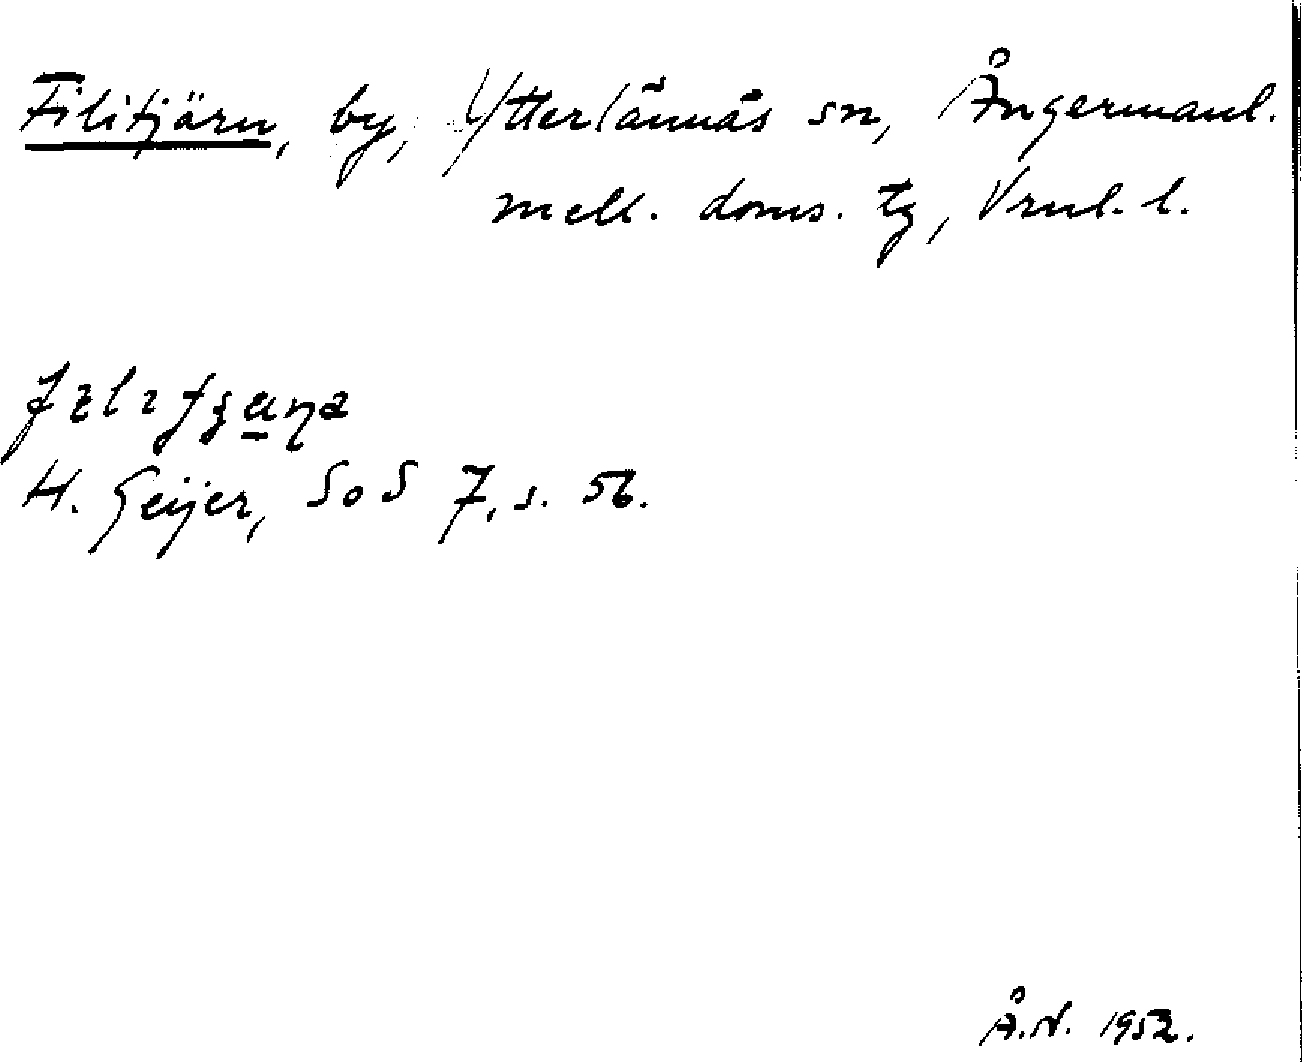 Filitjärn, by, Ytterlännäs sn, Ångermanl.
mell. doms. tg, Vnrl. l.
H. Geijer, SoS 7, s. 56.
Å.N. 1952.